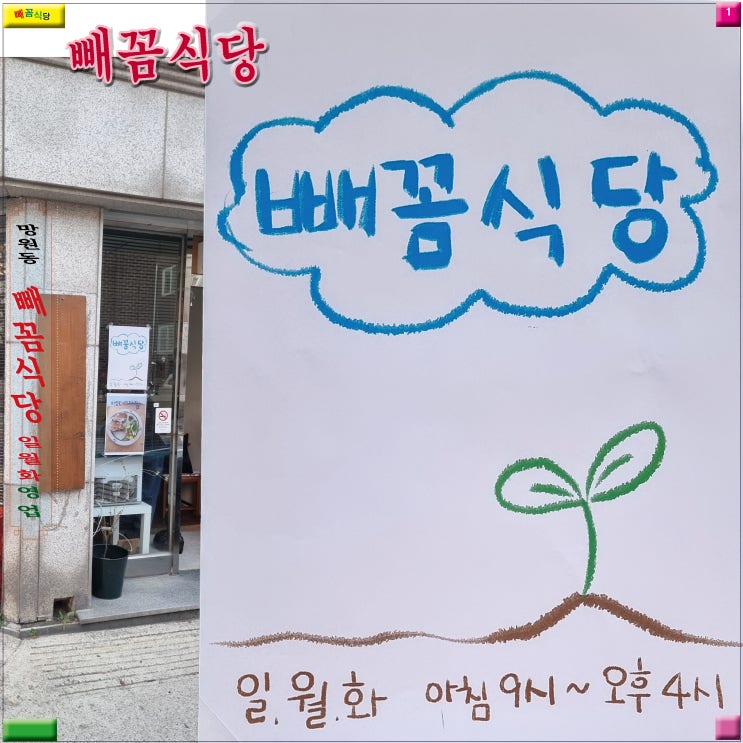 빼꼼식당
1
빼꼼식당
빼꼼식당
망원동
빼꼼식당
일월화영업
빼꼼식당
일.월.화 아침 9시 ~ 오후 4시